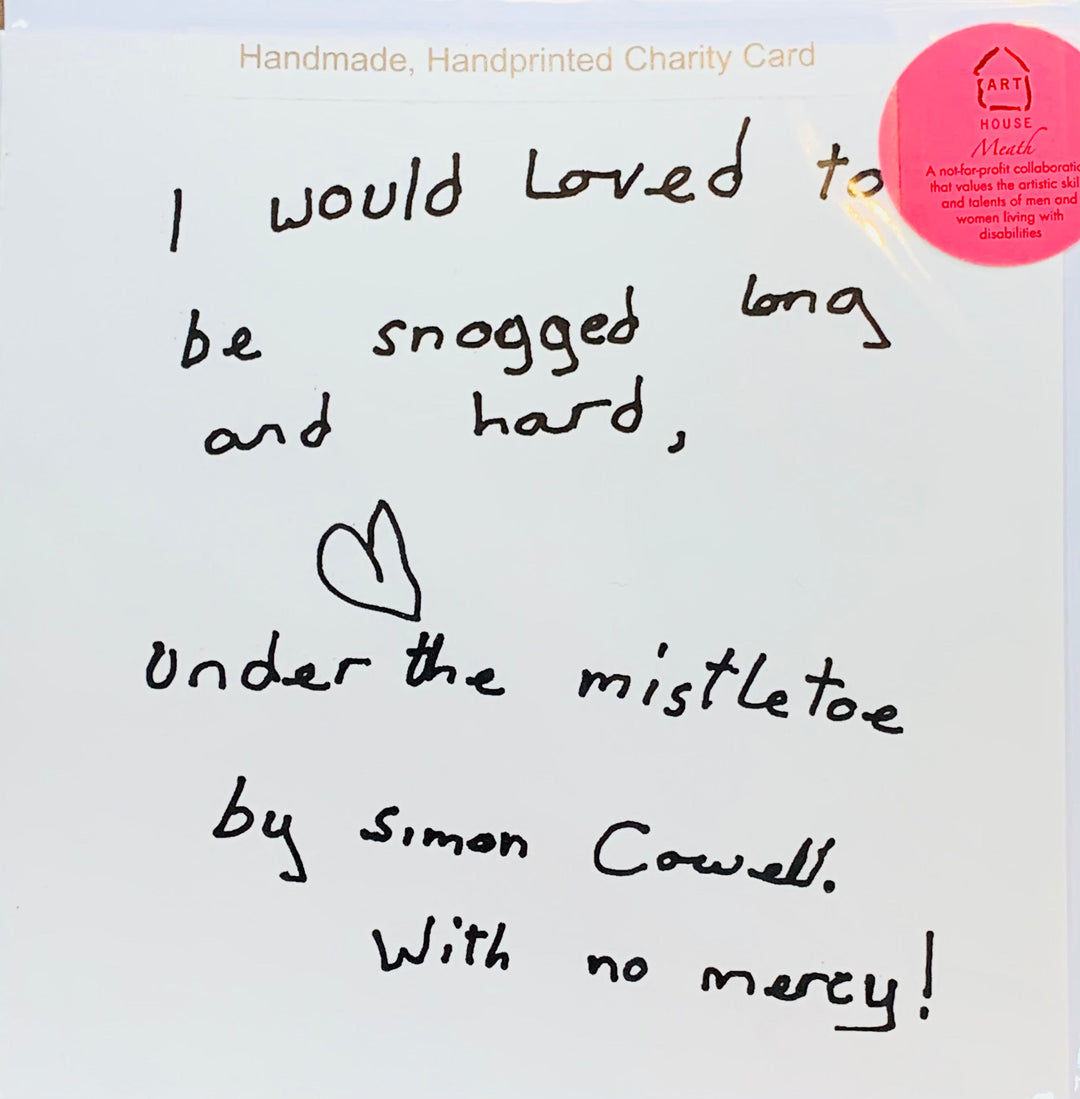 Handmade, Handprinted Charity Card
ART
HOUSE
Meath
A not-for-profit collaboratio
that values the artistic skil
and talents of men and
women living with
disabilities
I would Loved to
be snogged long
and hard,
under the mistletoe
by simon Cowell.
With no mercy!